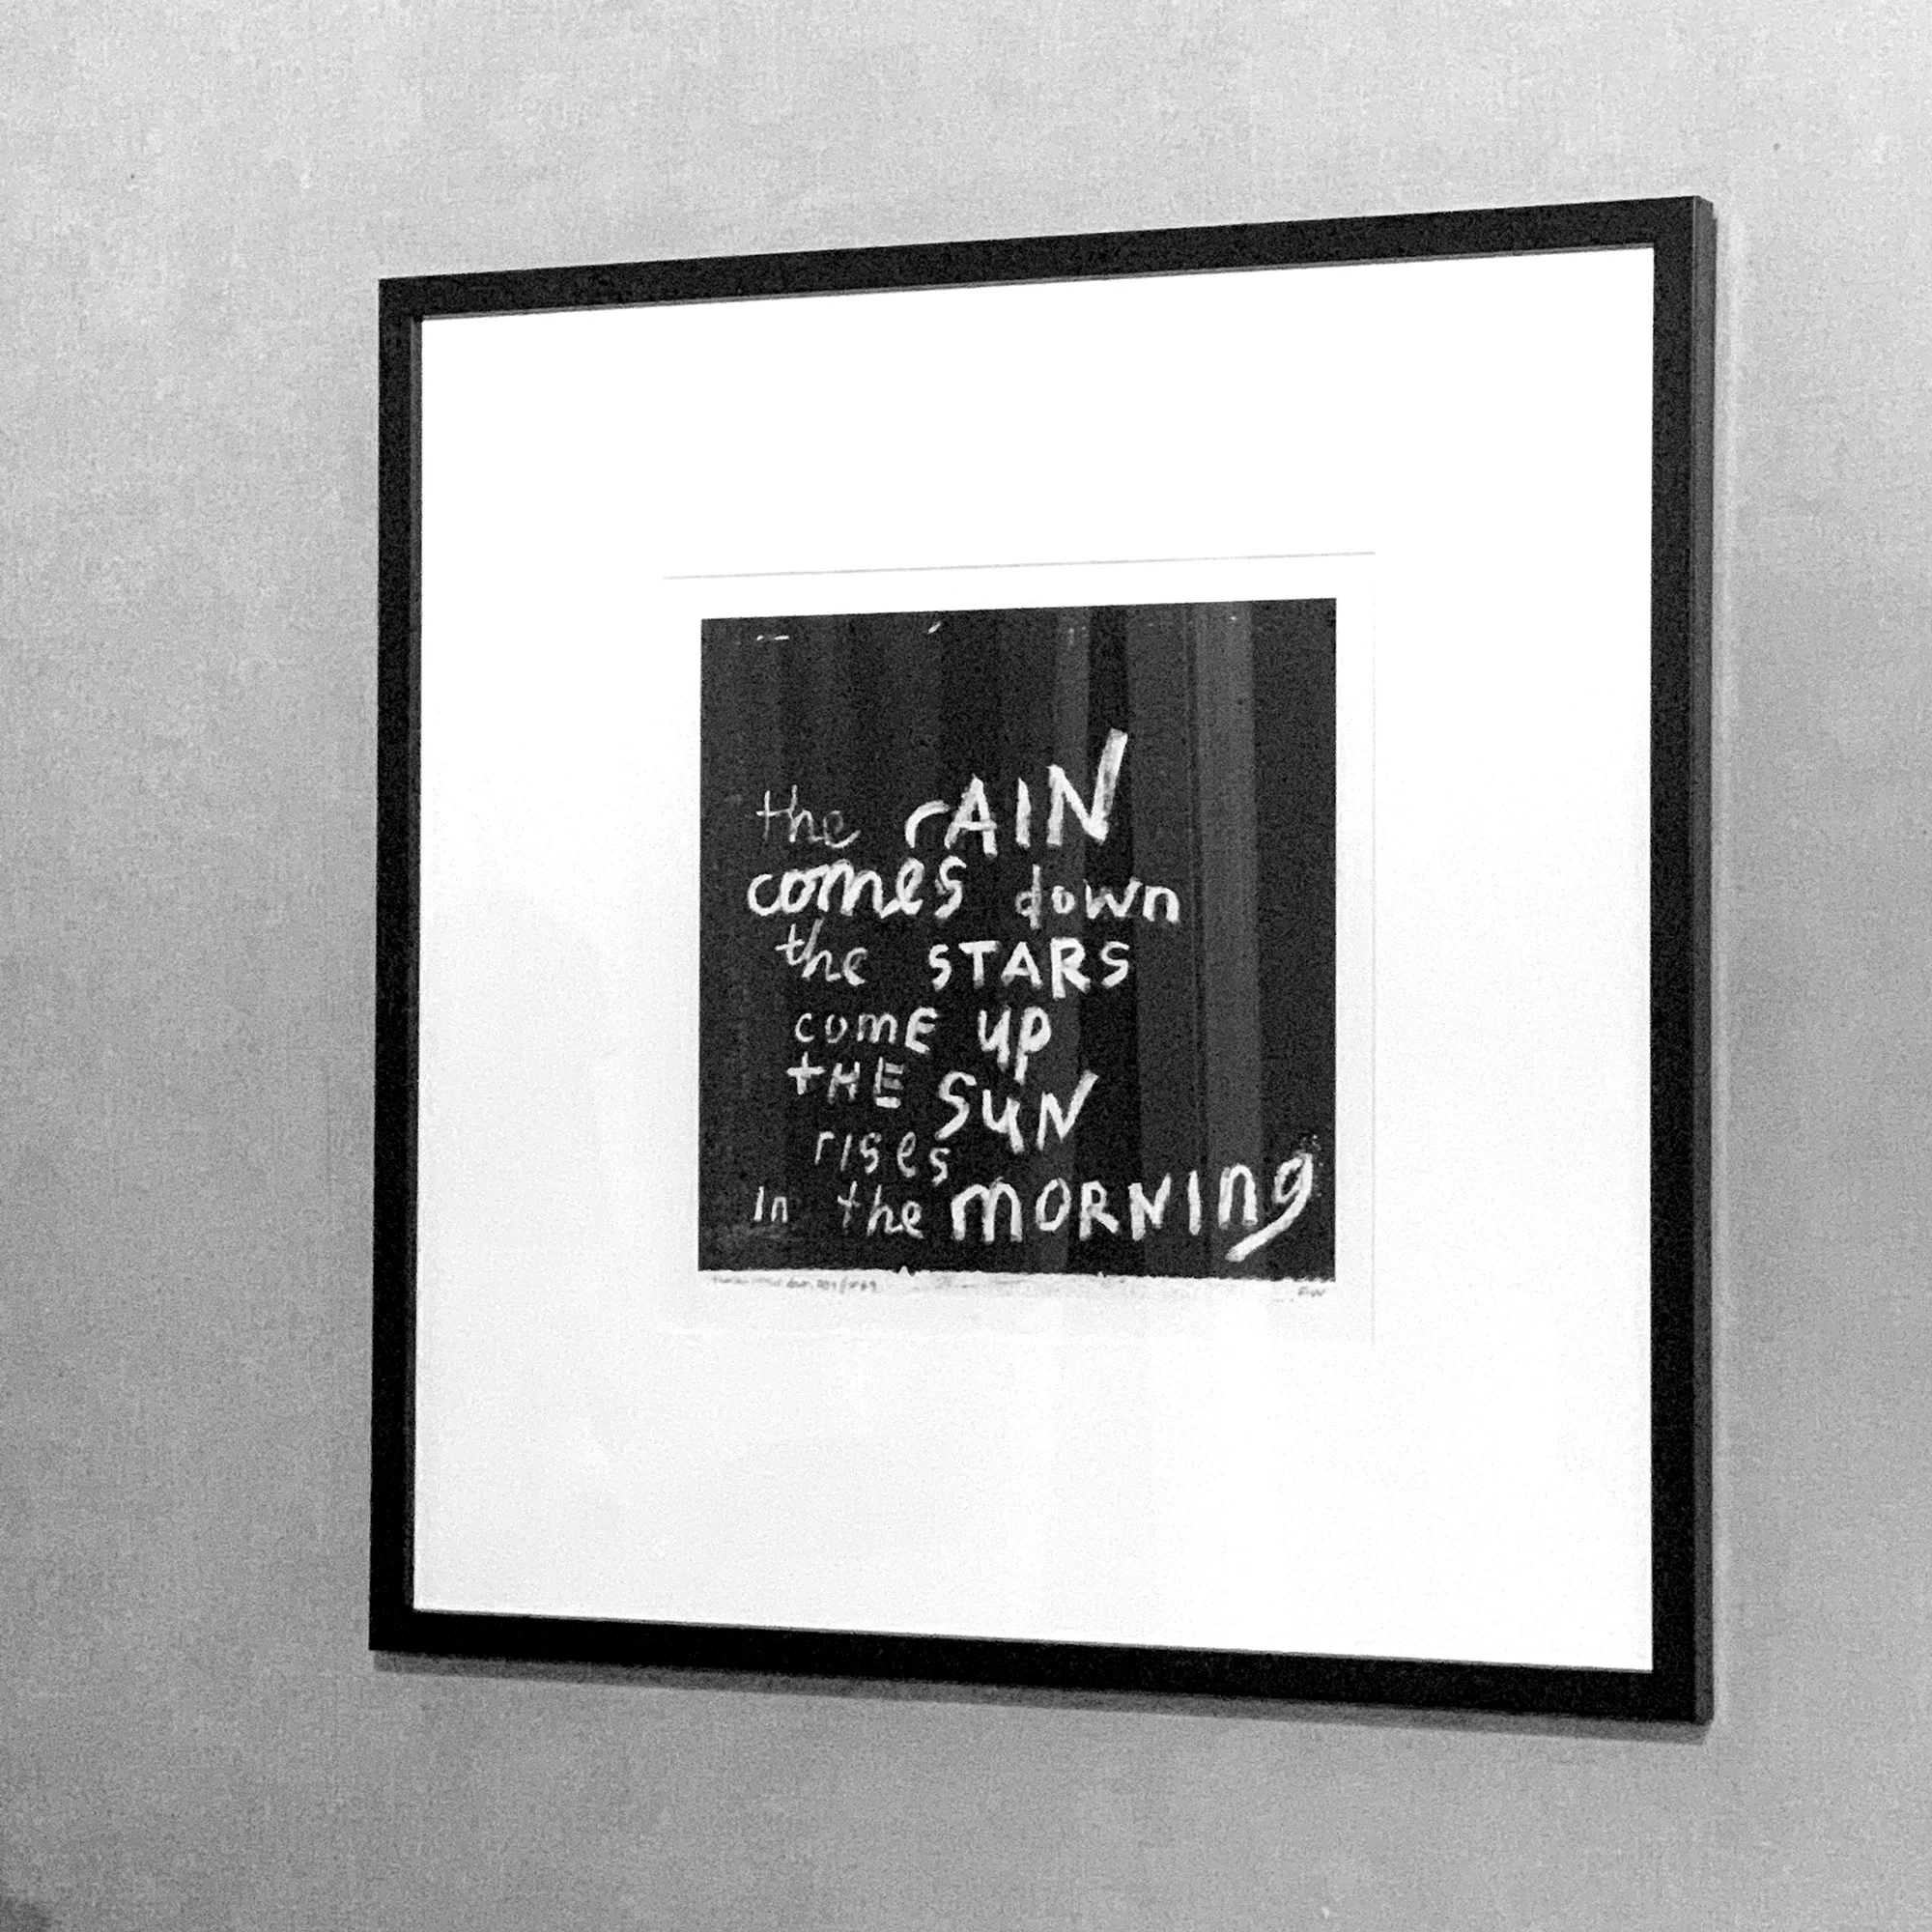 the rAIN
comes down
the STARS
comE up
tHE SuN
rises
In the mORNIng